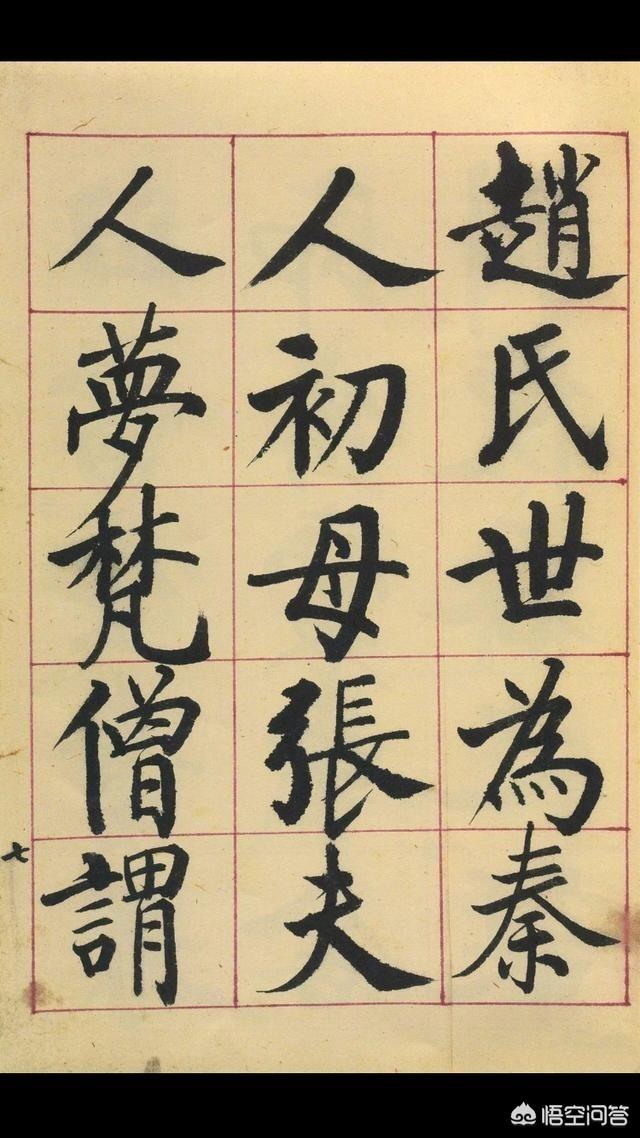 趙氏世為秦
人初母張夫
人夢梵僧謂
七
悟空问答